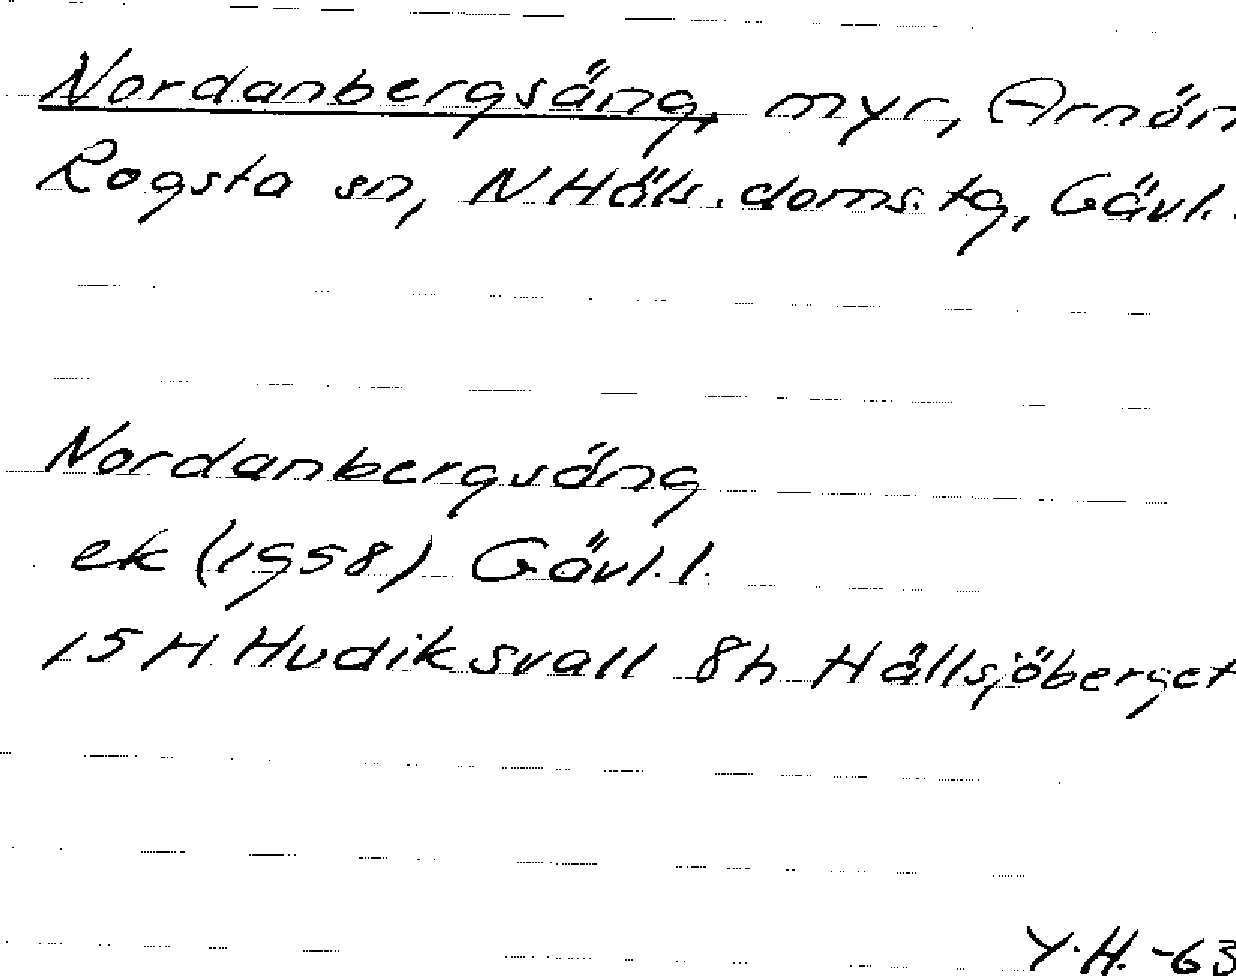 Nordanbergsäng, myr, Arnön
Rogsta sn, N Häls. doms. tg, Gävl.
Nordanbergsäng
ek (1958) Gävl. l.
15 H Hudiksvall 8h Hällsjöberget
Y.H. -63